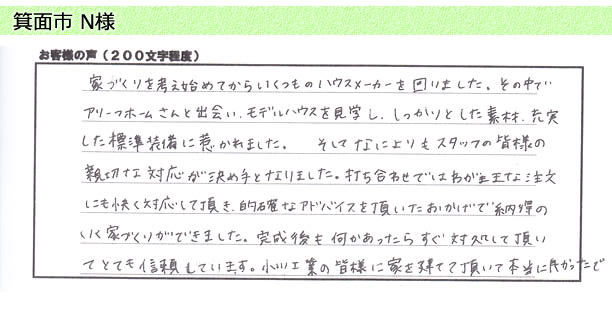 箕面市 N様
お客様の声（200文字程度）
家づくりを考え始めてからいくつものハウスメーカーを回りました。その中で
アリーフホームさんと出会い、モデルハウスを見学し、しっかりとした素材、充実
した標準装備に惹かれました。 そしてなによりもスタッフの皆様の
親切な対応が決め手となりました。打ち合わせではわが王な注文
にも快く対応して頂き、的確なアドバイスを頂いたおかげで納得の
いく家づくりができました。完成後も何かあったらすぐ対処して頂い
てとても信頼しています。小川工業の皆様に家を建てて頂いて本当に良かったで